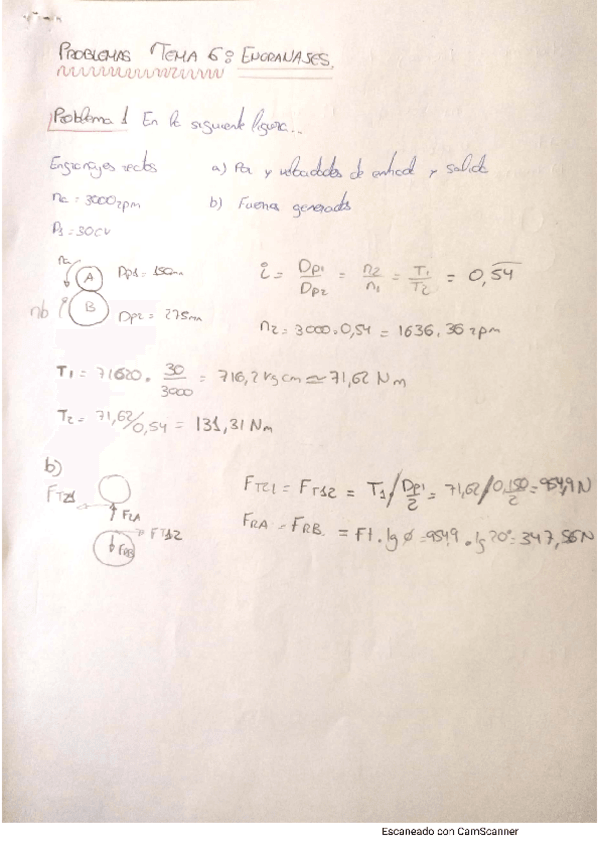 PROBLEMAS TEMA 6: ENGRANAJES.
Problema 1 En la siguiente figura...
Engranajes rectos a) Par y velocidades de entrad y salida
na = 3000 rpm b) Fuerzas generadas
P1 = 30CV
na A Dp1 = 150mm i = Dp1/Dp2 = n2/n1 = T1/T2 = 0,54
nb i B Dp2 = 275mm n2 = 3000 · 0,54 = 1636,36 rpm
T1 = 71620 · 30/3000 = 716,2 kg cm ≃ 71,62 Nm
T2 = 71,62/0,54 = 131,31 Nm
b)
FT21 FT21 = FT12 = T1/Dp1/2 = 71,62/0,150/2 = 954,9 N
FRA FRA = FRB = Ft · tg ϕ = 954,9 · tg 20° = 347,56 N
FT12
FRB
Escaneado con CamScanner